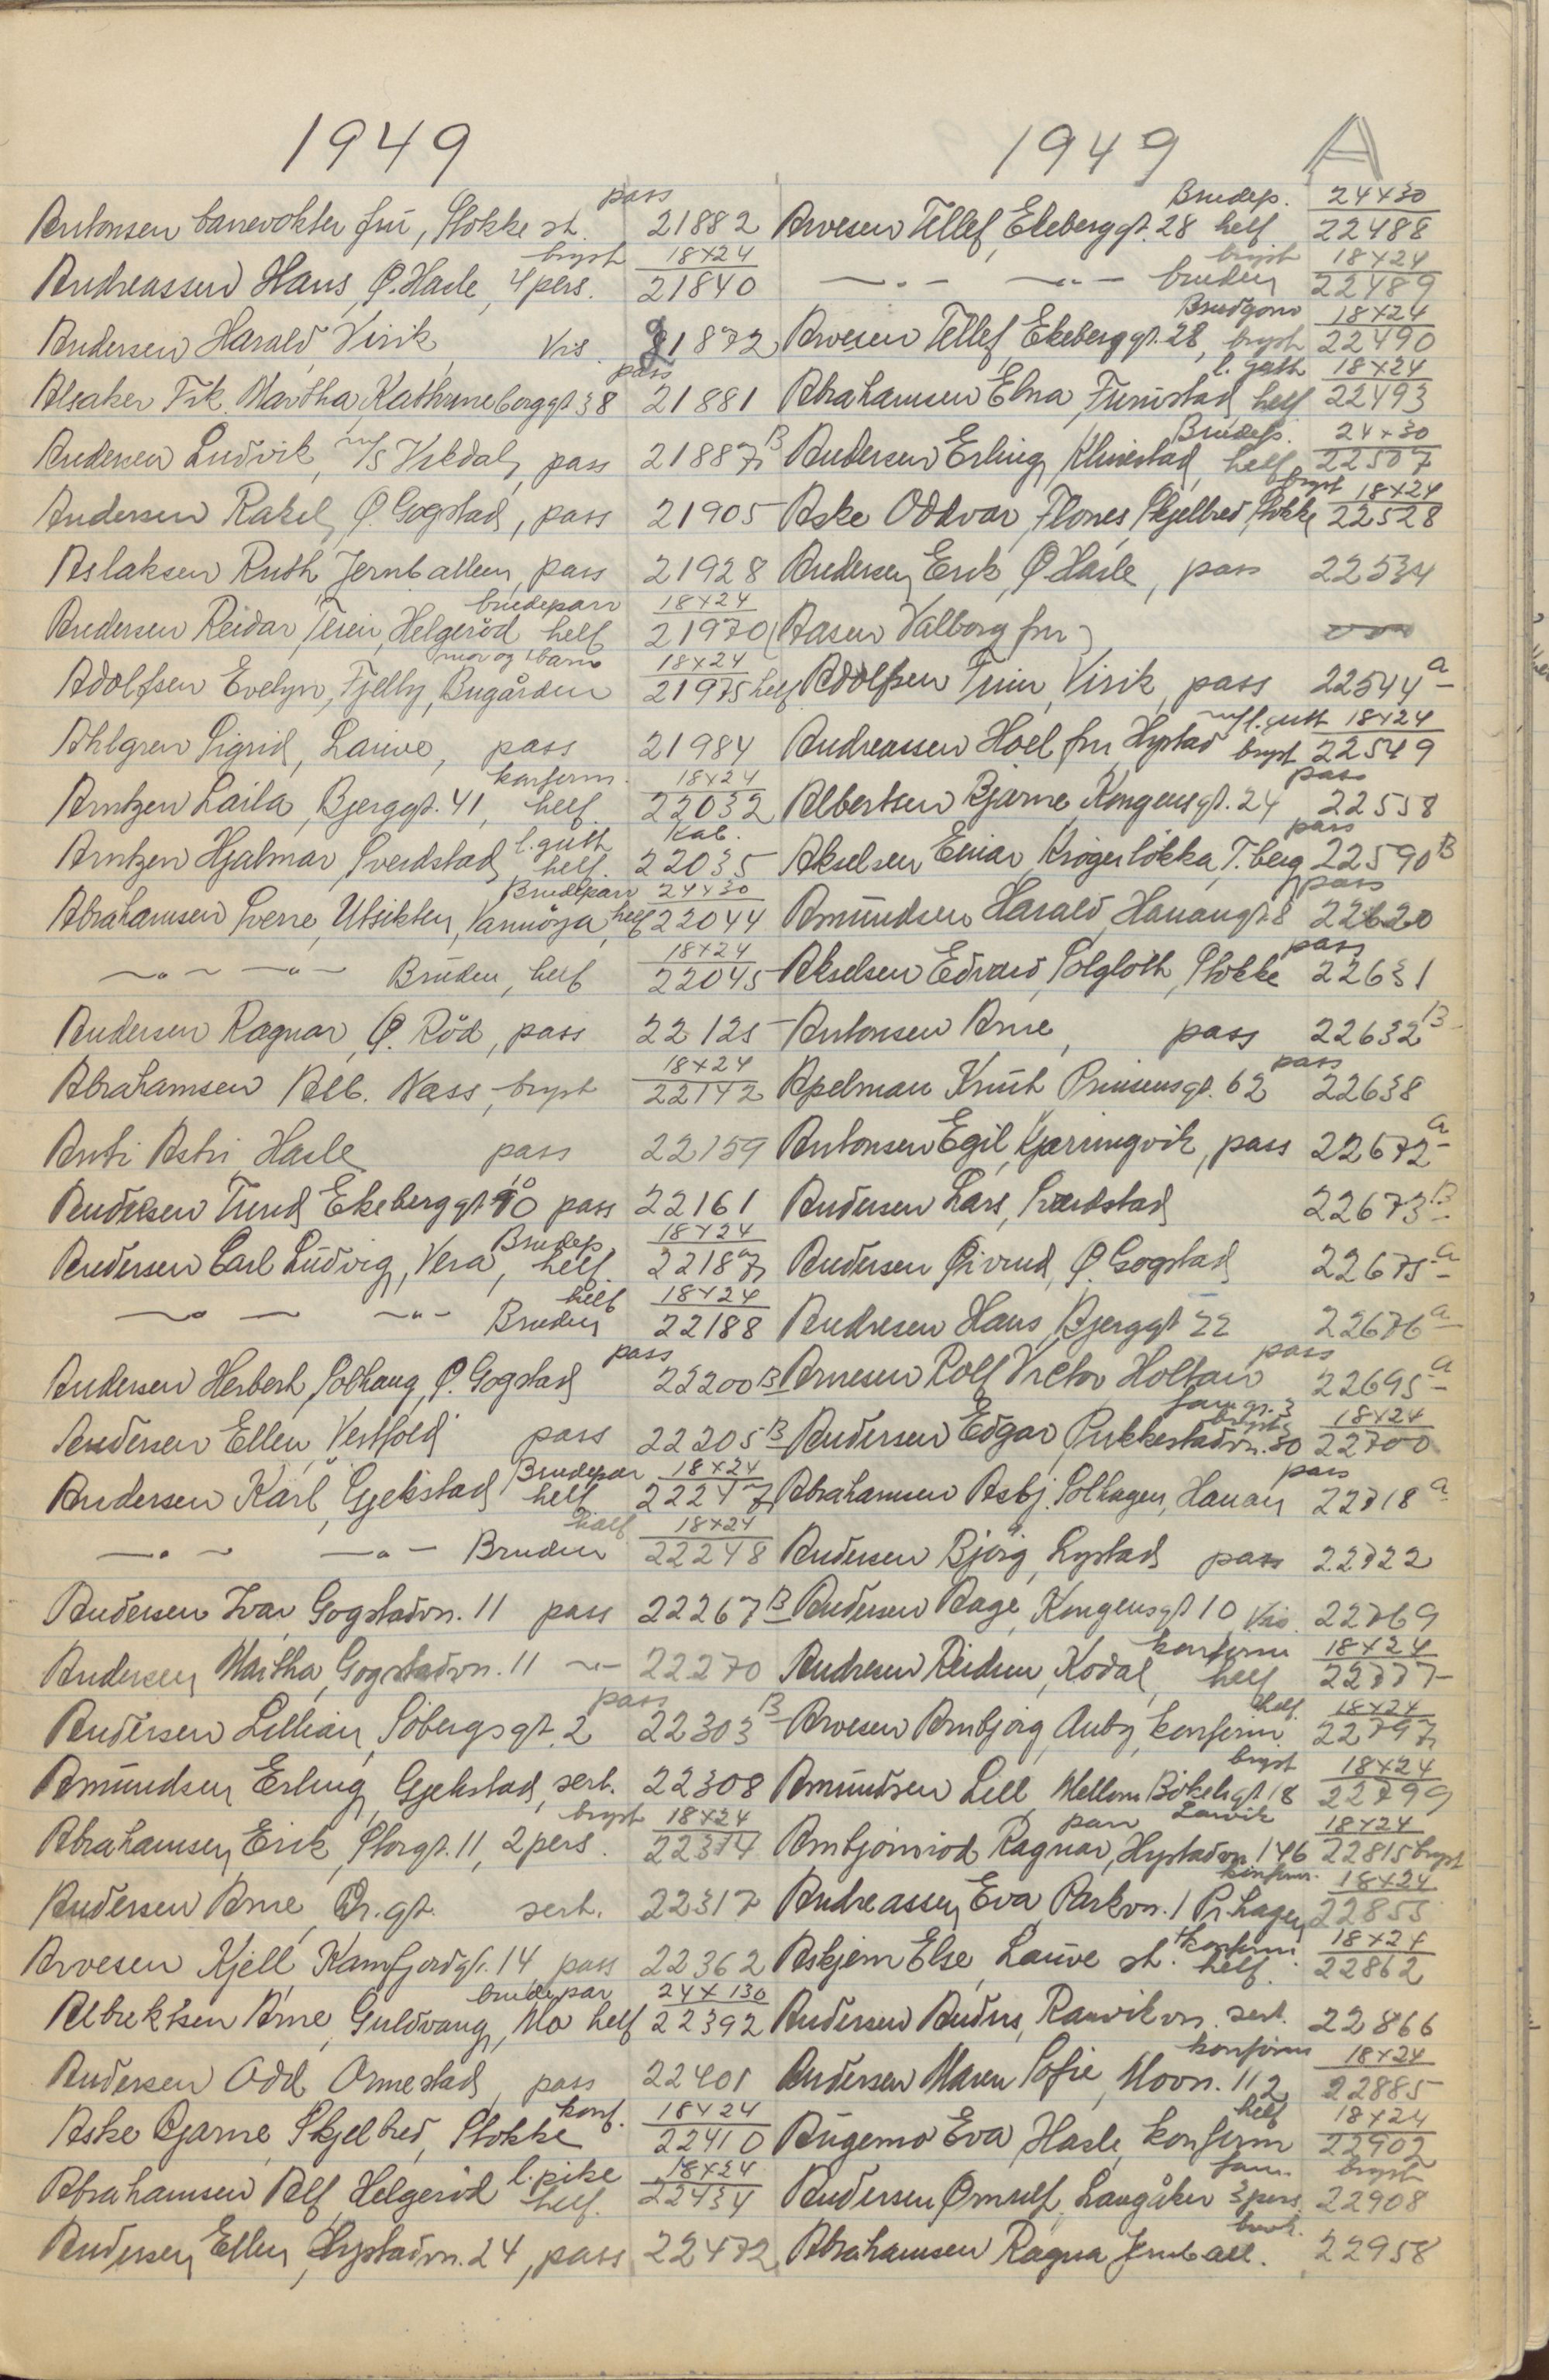 1949
pass
Antonsen banevokter fru, Stokke st. 21882
bryst 18x24
Andreassen Hans, Ø. Hasle, 4 pers. 21840
Andersen Harald Virik, Vis. 21872
pass
Alsaker Frk. Martha, Kathrineborggt 38 21881
Andersen Ludvik, M/S Vildal, pass 21887 B
Andersen Rakel, Ø. Gogstad, pass 21905
Aslaksen Ruth, Jernballeen, pass 21928
brudepar 18x24
Andersen Reidar, Teien, Helgerød helf 21970
mor og barn 18x24
Adolfsen Evelyn, Fjelly, Bugården 21975 helf
Ahlgren Sigrid, Lauve, pass 21984
konfirm. 18x24
Arntzen Laila, Bjerggt. 41, helf. 22032
l. gutt Kab.
Arntzen Hjalmar, Sverdstad helf. 22035
Brudepar 24x30
Abrahamsen Sverre, Utsikten, Vannøya, helf 22044
18x24
—"— —"— Bruden, helf 22045
Andersen Ragnar, Ø. Röd, pass 22125
18x24
Abrahamsen Alb. Nass, bryst 22142
Anti Astri Hasle pass 22159
Andersen Trund Ekeberggt 10 pass 22161
Brudep 18x24
Andersen Carl Ludvig, Vera, helf. 22187
helf 18x24
—"— —"— Bruden 22188
pass
Andersen Herbert, Solhaug, Ø. Gogstad 22200 B
Andersen Ellen, Vestfold pass 22205 B
Brudepar 18x24
Andersen Karl, Gjekstad helf 22247
half 18x24
—"— —"— Bruden 22248
Andersen Ivar, Gogstadvn. 11 pass 22267 B
Andersen Martha, Gogstadvn. 11 —"— 22270
pass
Andersen Lillian, Söbergsgt. 2 22303 B
Amundsen Erling, Gjekstad, sert. 22308
bryst 18x24
Abrahamsen Erik, Storgt. 11, 2 pers. 22314
Andersen Arne, Dr. gt. sert. 22317
Arvesen Kjell, Kamfjordgt. 14 pass 22362
brudepar 24x130
Albrektsen Arne, Guldvang, Mo helf 22392
Andersen Odd Ormestad, pass 22401
konf. 18x24
Aske Bjarne, Skjelbred, Stokke 22410
l. pike 18x24
Abrahamsen Alf, Helgeröd helf. 22434
Andersen Ellen, Hystadvn. 24, pass 22472
1949 A
Brudep. 24x30
Arvesen Tellef, Ekeberggt. 28 helf 22488
bryst 18x24
—"— —"— bruden 22489
Brudgom 18x24
Arvesen Tellef, Ekeberggt. 28, bryst 22490
l. gutt 18x24
Abrahamsen Elna, Furustad, helf 22493
Brudep. 24x30
Andersen Erling, Klinestad, helf 22507
bryst 18x24
Aske Oddvar, Flones, Skjelbred, Stokke 22528
Andersen Erik, Ø. Hasle, pass 22534
Aasen Valborg fru
Adolfsen Trim, Virik, pass 22544 a
m/l. gutt 18x24
Andreassen Hoel fru, Hystad bryst 22549
pass
Albertsen Bjarne, Kongensgt. 24 22558
pass
Akselsen Einar, Krögerlökka, T.berg 22590 B
pass
Amundsen Harald, Hauangt 8 22620
pass
Akselsen Edvard, Solglött, Stokke 22631
Antonsen Arne, pass 22632 B
pass
Apelman Knut Prinsensgt. 62 22638
Antonsen Egil, Kjerringvik, pass 22672 a
Andersen Lars, Sverdstad 22673 B
Andersen Øivind, Ø. Gogstad 22675 a
Andresen Hans, Bjerggt 22 22676 a
pass
Arnesen Rolf Victor Holtan 22695 a
fam gr. 3 bryst 18x24
Andersen Edgar, Pukkestadvn. 30 22700
pass
Abrahamsen Asbj. Solhagen, Hauan 22718 a
Andersen Björg, Lystad pass 22722
Andersen Aage, Kongensgt 10 Vis 22769
konfirm 18x24
Andresen Reidun, Kodal, helf 22777
helf. 18x24
Arvesen Arnbjörg, Auby, konfirm. 22797
bryst 18x24
Amundsen Lill, Mellom Bökeligt 18 22799
par Larvik 18x24
Arnbjörnröd Ragnar, Hystadvn 146 22815 bryst
konfirm. 18x24
Andreassen Eva, Parkvn. 1 Pr. hagen 22855
konfirm 18x24
Askjem Else, Lauve st. helf. 22862
Andersen Anders, Ranvikvn. sert. 22866
konfirm 18x24
Andersen Maren Sofie, Movn. 112 22885
helf 18x24
Augemo Eva, Hasle, konfirm 22902
fam. bryst
Andersen Ørnulf, Langåker 3 pers. 22908
Abrahamsen Ragna Jernb all. 22958